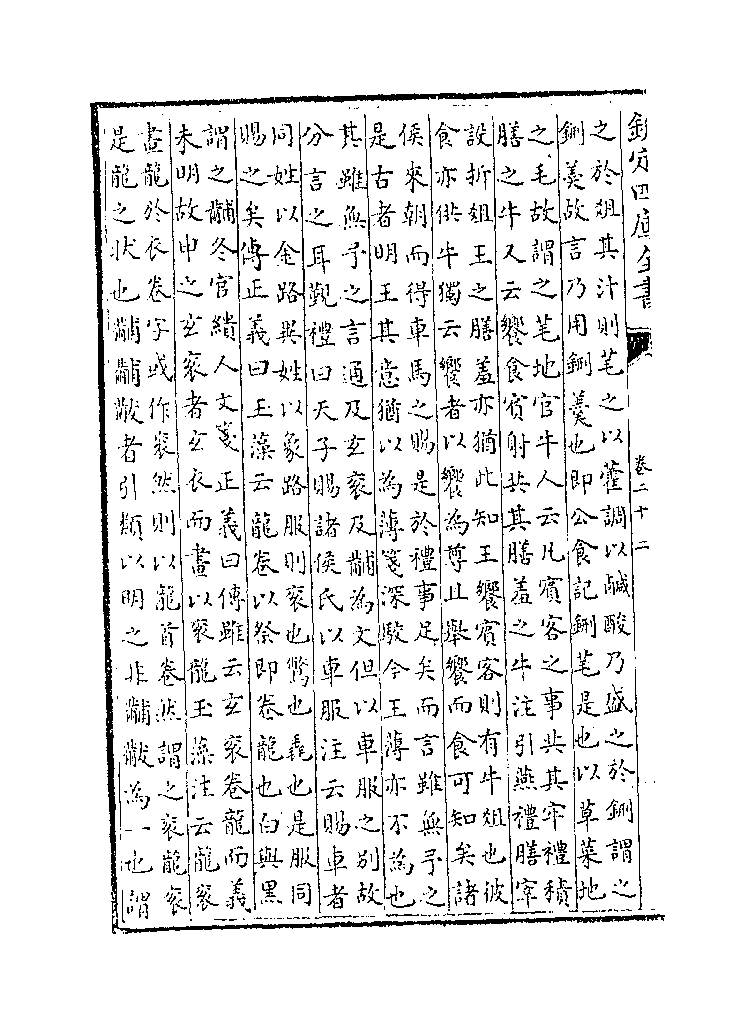 欽定四庫全書
卷二十二
之於俎其汁則芼之以藿調以鹹酸乃盛之於鉶謂之
鉶羮故言乃用鉶羮也即公食記鉶芼是也以草菜地
之毛故謂之芼地官牛人云凡賓客之事共其牢禮積
膳之牛又云饗食賓射共其膳羞之牛注引燕禮膳宰
設折俎王之膳羞亦猶此知王饗賓客則有牛俎也彼
食亦供牛獨云饗者以饗為尊且舉饗而食可知矣諸
侯來朝而得車馬之賜是於禮事足矣而言雖無予之
是古者明王其意猶以為薄箋深駮今王薄亦不為也
其雖無予之言通及玄衮及黼為文但以車服之别故
分言之耳覲禮曰天子賜諸侯氏以車服注云賜車者
同姓以金路異姓以象路服則衮也鷩也毳也是服同
賜之矣傳正義曰玉藻云龍卷以祭即卷龍也白與黑
謂之黼冬官繢人文箋正義曰傳雖云玄衮卷龍而義
未明故申之玄衮者玄衣而畫以衮龍玉藻注云龍衮
畫龍於衣卷字或作衮然則以龍首卷然謂之衮龍衮
是龍之狀也黼黼黻者引類以明之非黼黻為一也謂